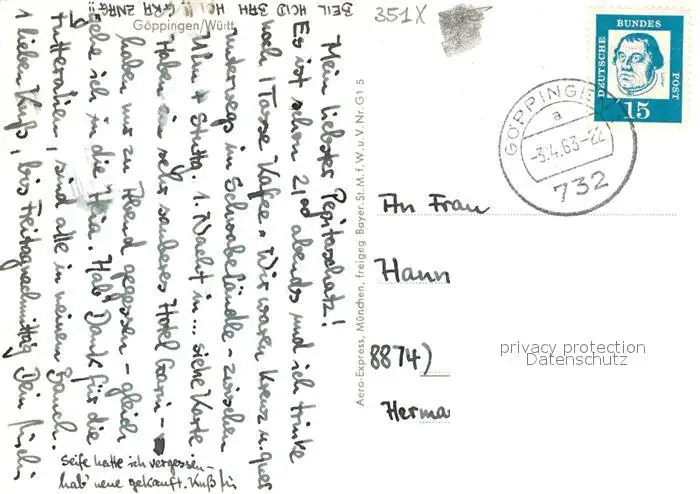 351X
Göppingen/Württ.
Mein liebster Pepitaschatz!
Es ist schon 21 abends und ich trinke
noch 1 Tasse Kaffee. Wir waren kreuz u. quer
unterwegs im Schwabeländle - zwischen
Ulm + Stuttg. 1. Nacht in ... siehe Karte
Haben ein sehr sauberes Hotel Garni -
haben nur zu Abend gegessen - gleich
gehe ich in die Heia. Hab' Dank für die
Futteralien, sind alle in meinem Bauch.
1 lieben Kuß, bis Freitagnachmittag Dein
Seife hatte ich vergessen -
hab' neue gekauft. Kuß
Aero-Express, München, freigeg. Bayer. St. M. f. W. u. V. Nr. G1 5
DEUTSCHE BUNDES POST
15
GÖPPINGEN
a
-3.4.63-22
732
An Frau
Hann
8874)
Herma
privacy protection
Datenschutz